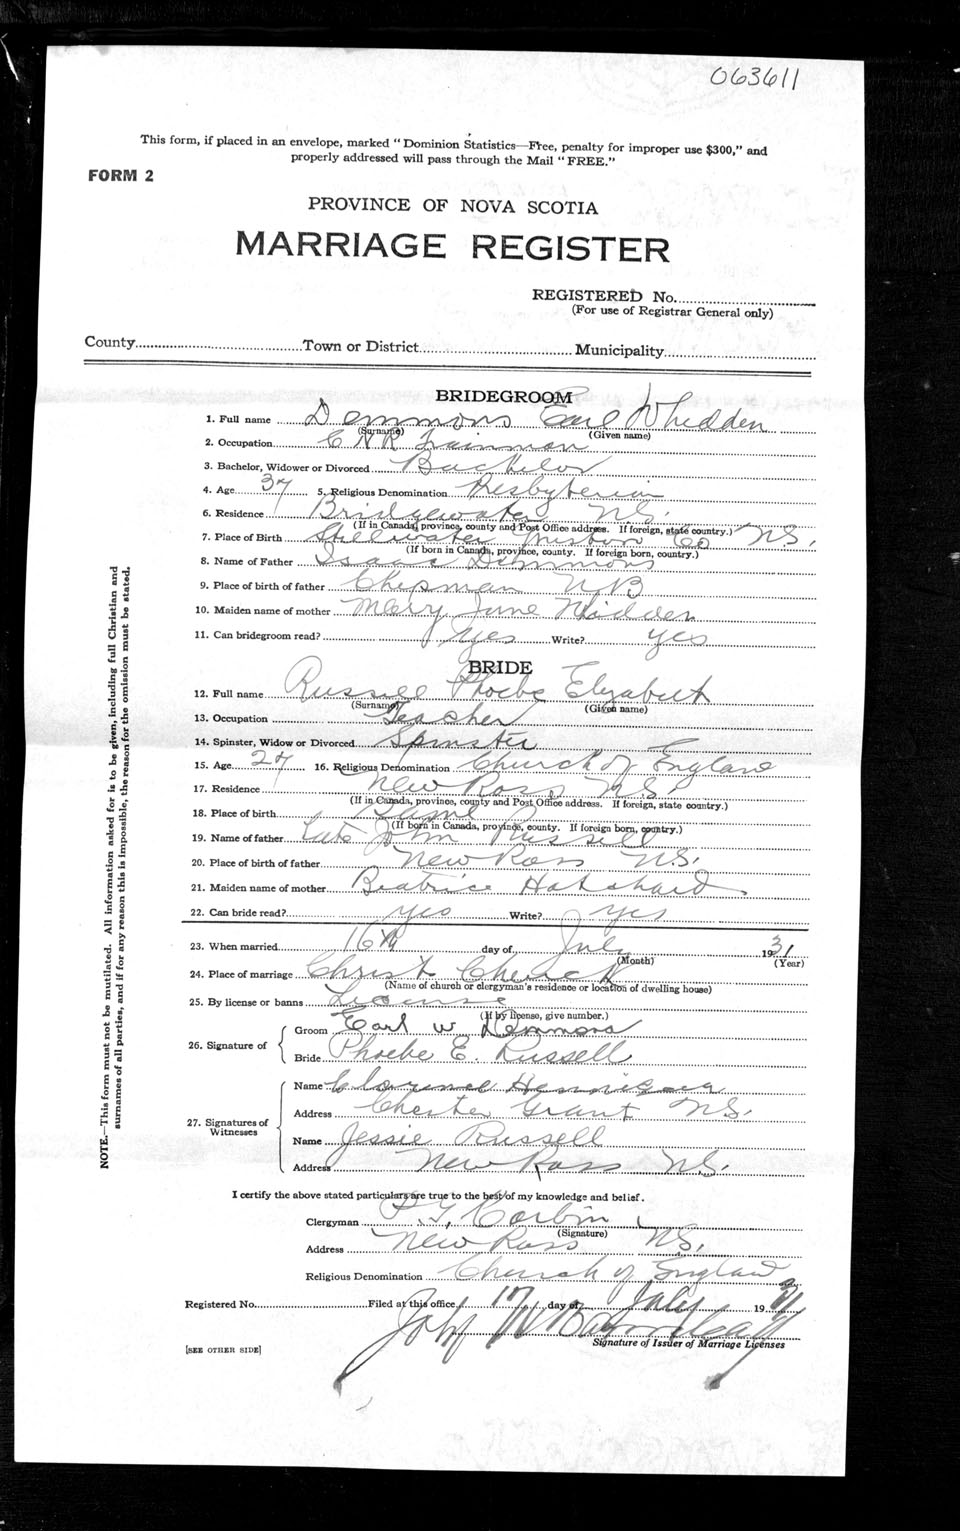 063611
This form, if placed in an envelope, marked "Dominion Statistics—Free, penalty for improper use $300," and
properly addressed will pass through the Mail "FREE."
FORM 2
PROVINCE OF NOVA SCOTIA
MARRIAGE REGISTER
REGISTERED No.
(For use of Registrar General only)
County Town or District Municipality
BRIDEGROOM
1. Full name Demmons Earl Whidden
(Surname) (Given name)
2. Occupation C N R Trainman
3. Bachelor, Widower or Divorced Bachelor
4. Age 37 5. Religious Denomination Presbyterian
6. Residence Bridgewater N.S.
(If in Canada, province, county and Post Office address. If foreign, state country.)
7. Place of Birth Stillwater Co N.S.
(If born in Canada, province, county. If foreign born, country.)
8. Name of Father Isaac Demmons
9. Place of birth of father Chipman N B
10. Maiden name of mother Mary Jane Whidden
11. Can bridegroom read? yes Write? yes
BRIDE
12. Full name Russell Phoebe Elizabeth
(Surname) (Given name)
13. Occupation Teacher
14. Spinster, Widow or Divorced Spinster
15. Age 27 16. Religious Denomination Church of England
17. Residence New Ross N.S.
(If in Canada, province, county and Post Office address. If foreign, state country.)
18. Place of birth Same
(If born in Canada, province, county. If foreign born, country.)
19. Name of father Late John Russell
20. Place of birth of father New Ross N.S.
21. Maiden name of mother Beatrice Hatchard
22. Can bride read? yes Write? yes
23. When married 16th day of July 1931
(Month) (Year)
24. Place of marriage Christ Church
(Name of church or clergyman's residence or location of dwelling house)
25. By license or banns License
(If by license, give number.)
26. Signature of
Groom Earl W Demmons
Bride Phoebe E. Russell
27. Signatures of Witnesses
Name Clarence Hennigar
Address Chester Grant N.S.
Name Jessie Russell
Address New Ross N.S.
I certify the above stated particulars are true to the best of my knowledge and belief.
Clergyman Corbin
(Signature)
Address New Ross N.S.
Religious Denomination Church of England
Registered No. Filed at this office 17 day of July 1931
Signature of Issuer of Marriage Licenses
[SEE OTHER SIDE]
NOTE.—This form must not be mutilated. All information asked for is to be given, including full Christian and
surnames of all parties, and if for any reason this is impossible, the reason for the omission must be stated.